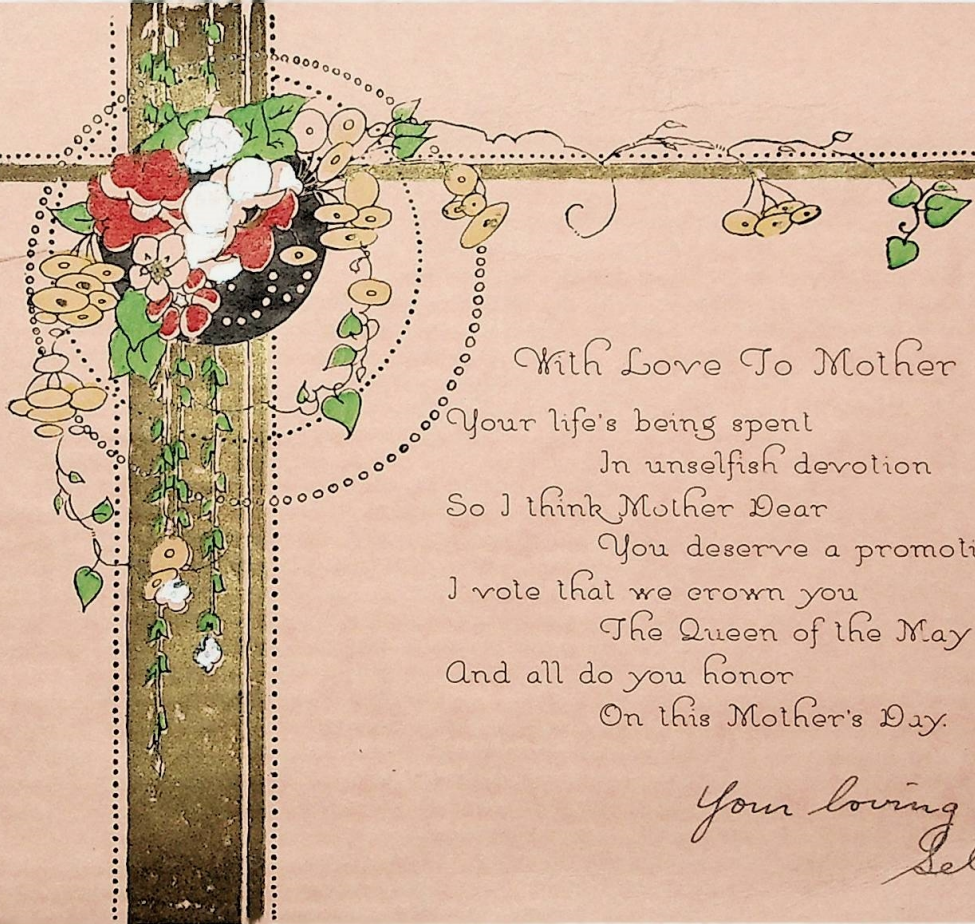 With Love To Mother
Your life's being spent
In unselfish devotion
So I think Mother Dear
You deserve a promoti
I vote that we crown you
The Queen of the May
And all do you honor
On this Mother's Day.
Your loving